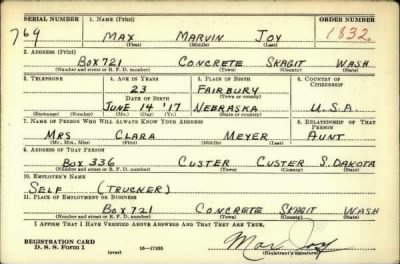 SERIAL NUMBER 1. NAME (Print) ORDER NUMBER
769 MAX MARVIN JOY 1832
(First) (Middle) (Last)
2. ADDRESS (Print)
BOX 721 CONCRETE SKAGIT WASH.
(Number and street or R. F. D. number) (Town) (County) (State)
3. TELEPHONE 4. AGE IN YEARS 5. PLACE OF BIRTH 6. COUNTRY OF CITIZENSHIP
23 FAIRBURY
DATE OF BIRTH (Town or county)
JUNE 14 '17 NEBRASKA U.S.A.
(Exchange) (Number) (Mo.) (Day) (Yr.) (State or country)
7. NAME OF PERSON WHO WILL ALWAYS KNOW YOUR ADDRESS 8. RELATIONSHIP OF THAT PERSON
MRS CLARA MEYER AUNT
(Mr., Mrs., Miss) (First) (Middle) (Last)
9. ADDRESS OF THAT PERSON
BOX 336 CUSTER CUSTER S. DAKOTA
(Number and street or R. F. D. number) (Town) (County) (State)
10. EMPLOYER'S NAME
SELF (TRUCKER)
11. PLACE OF EMPLOYMENT OR BUSINESS
BOX 721 CONCRETE SKAGIT WASH
(Number and street or R. F. D. number) (Town) (County) (State)
I AFFIRM THAT I HAVE VERIFIED ABOVE ANSWERS AND THAT THEY ARE TRUE.
REGISTRATION CARD
D. S. S. Form 1 (over) 16—17105 Max Joy